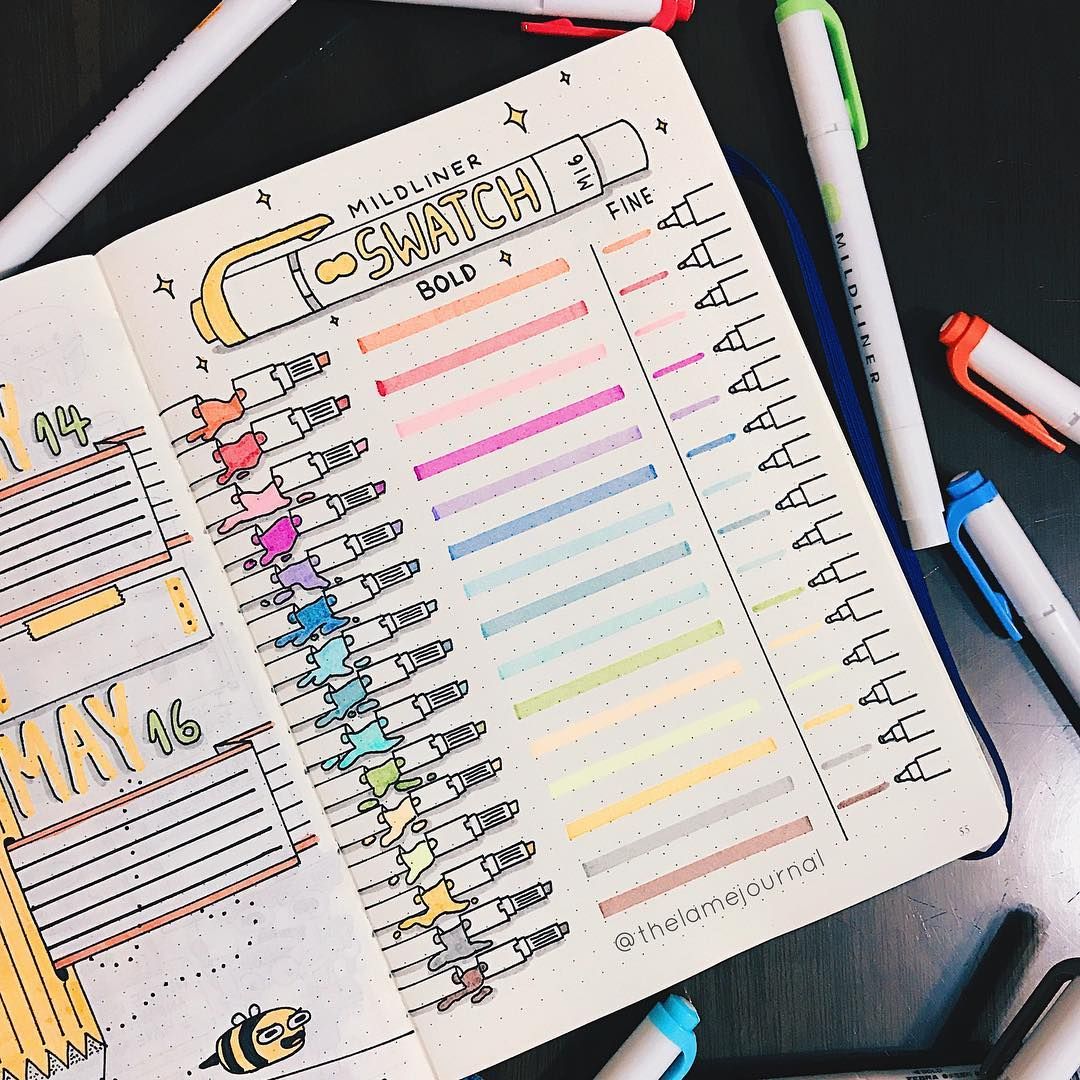 MILDLINER
SWATCH
MIG
BOLD
FINE
Y 14
MAY 16
@thelamejournal
55
MILDLINER